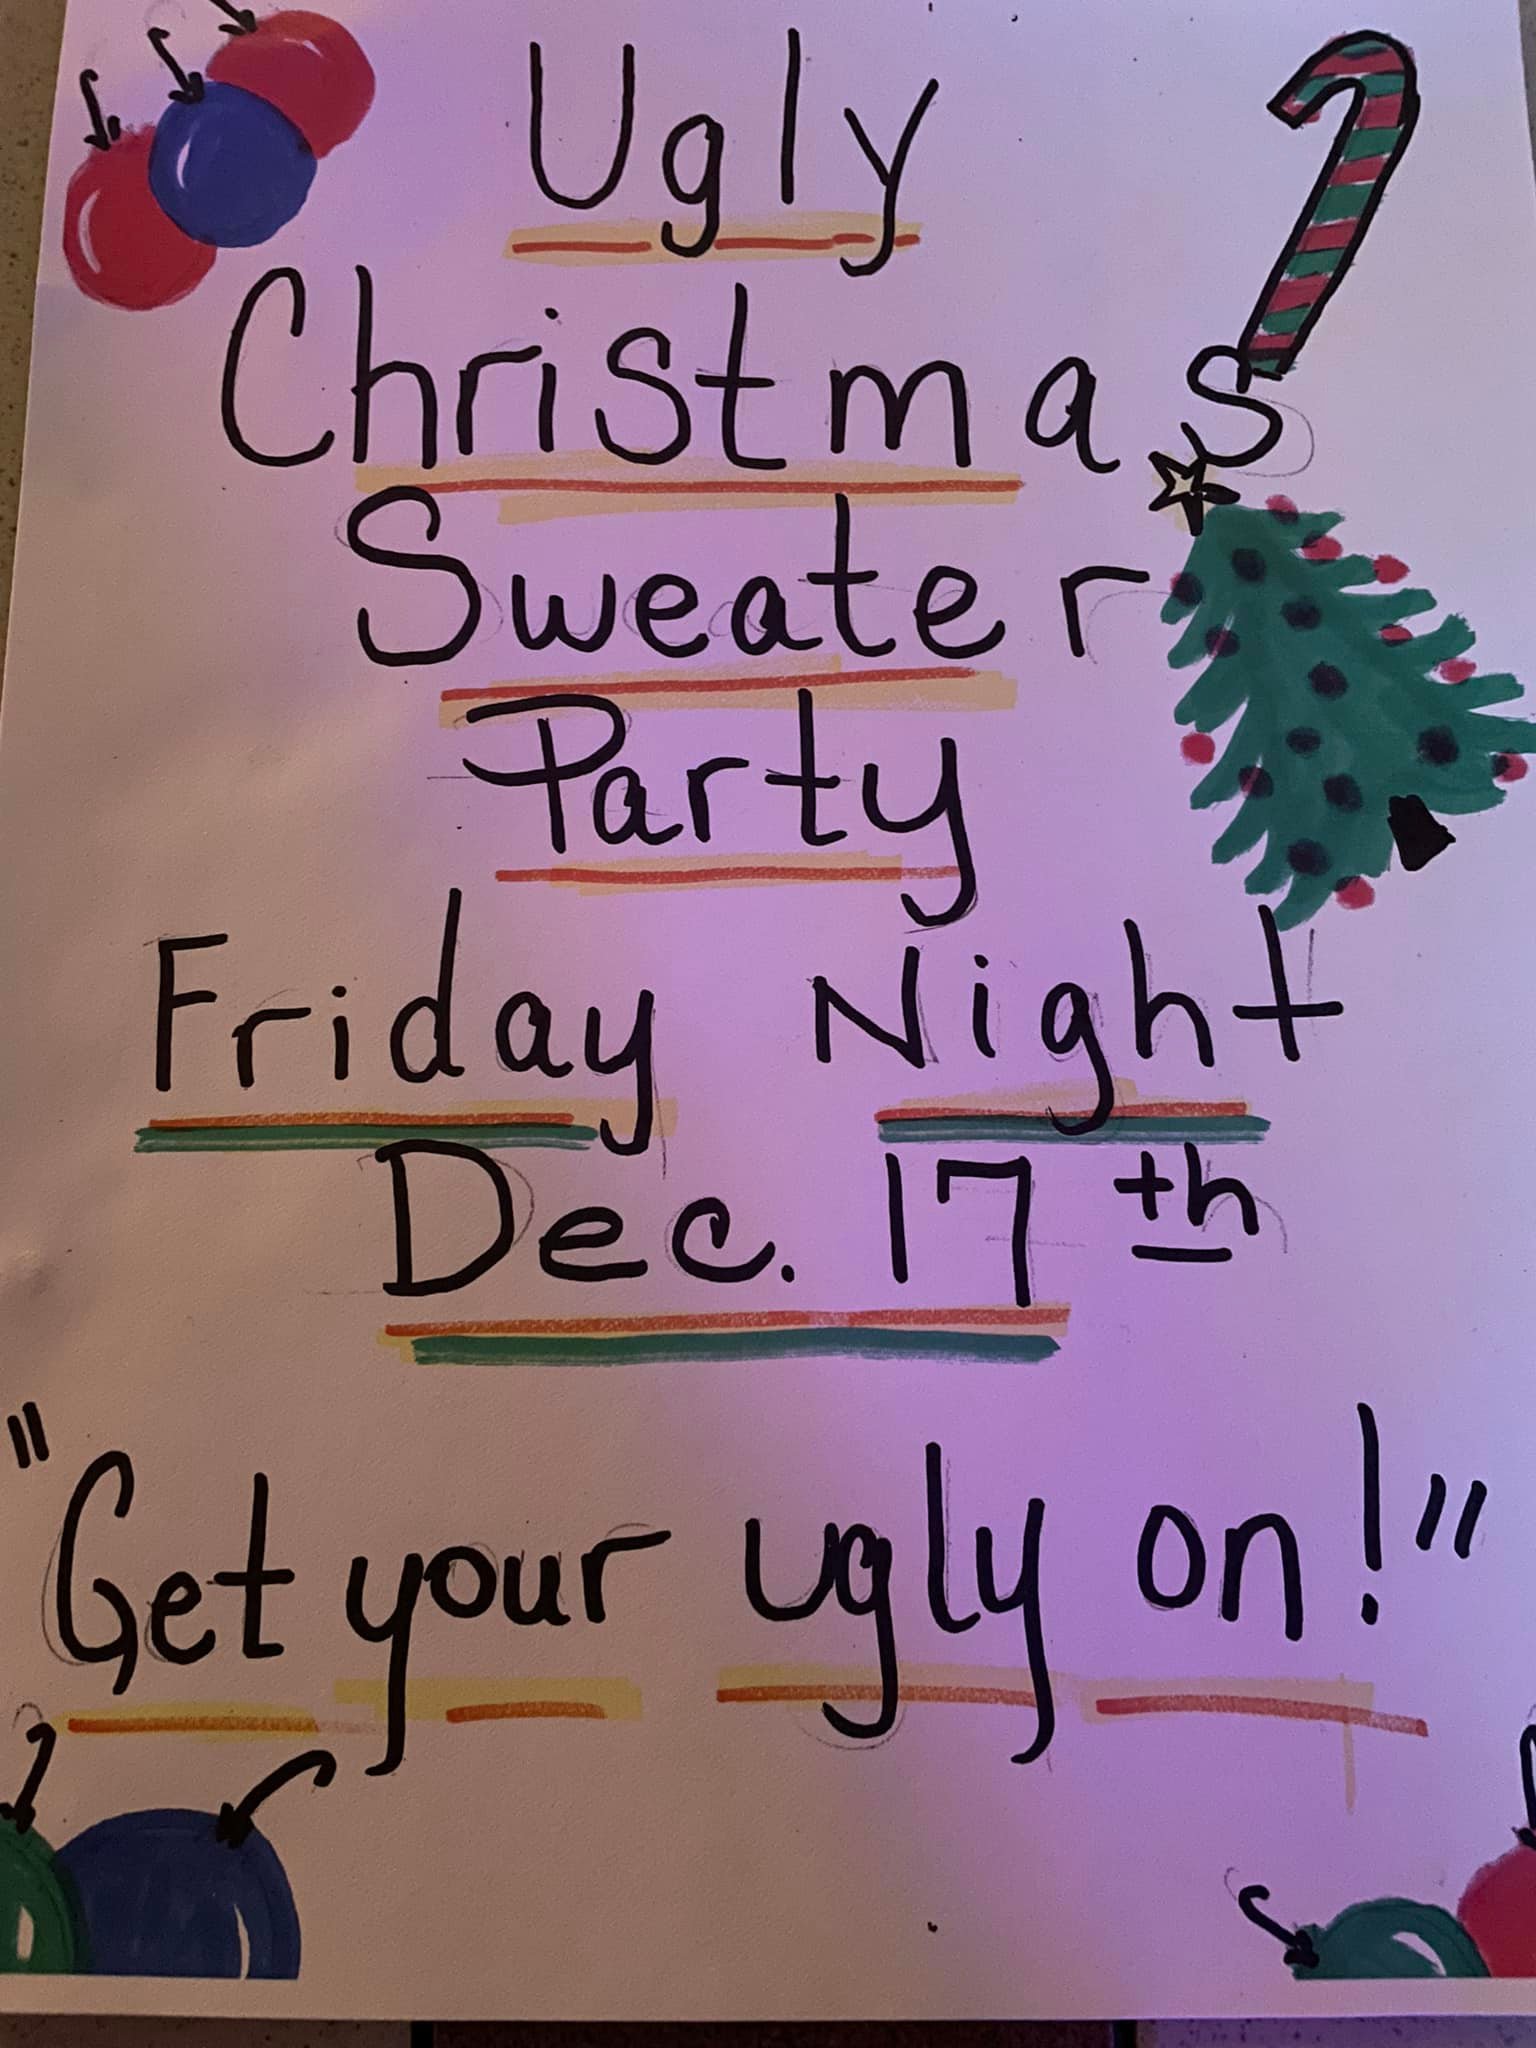 Ugly
Christmas
Sweater
Party
Friday Night
Dec. 17th
"Get your ugly on!"